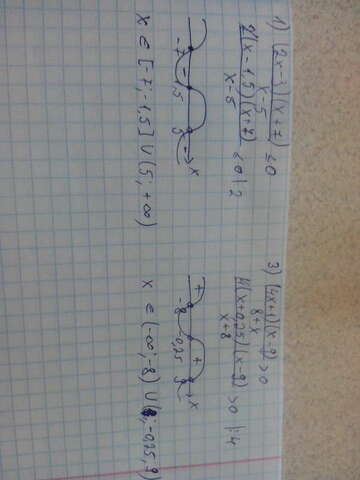 1) (2x-3)(x+7)/x-5 ≤ 0
2(x-1,5)(x+7)/x-5 ≤ 0 |:2
-7 - 1,5 5 - x
x ∈ [-7;-1,5] ∪ (5; +∞)
3) (4x+1)(x-9)/8+x > 0
4(x+0,25)(x-9)/x+8 > 0 |:4
+ -8 -0,25 + 9 x
x ∈ (-∞;-8) ∪ (-0,25; 9)